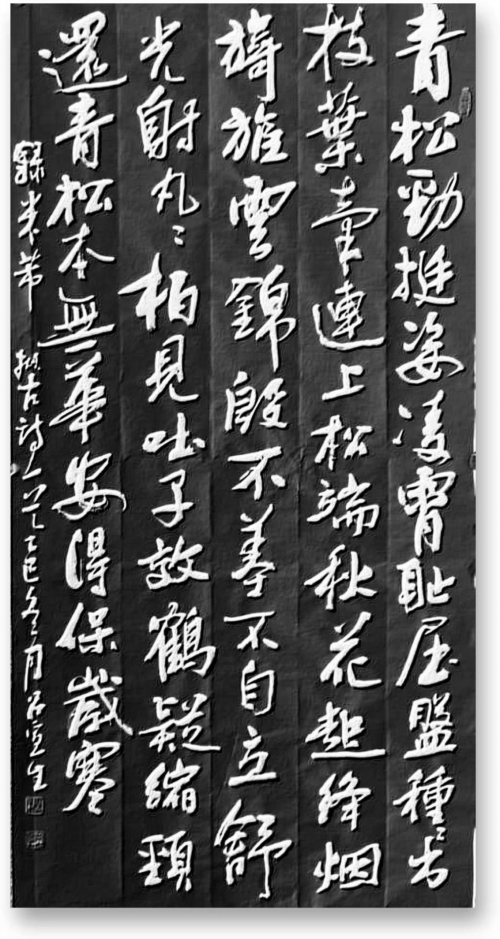 青松勁挺姿凌霄耻屈盤種〻出
枝葉牽連上松端秋花起絳烟
旖旎雲錦殷不羞不自立舒
光射丸〻柏見吐子效鶴疑縮頸
還青松本無華安得保歲寒
錄米芾拟古詩一首乙巳冬月宣生